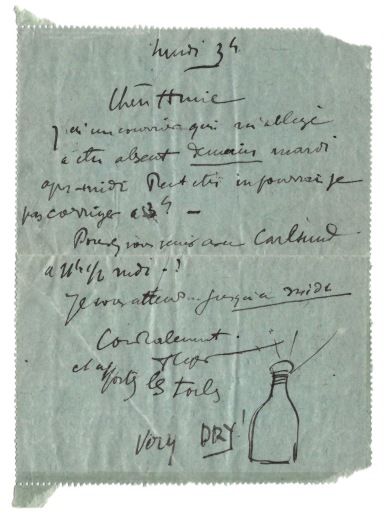 lundi 3h
Chère Amie
J'ai un courrier qui m'oblige
a etre absent demain mardi
apr-midi Peut etre ne pourrai je
pas corriger a 3h –
Pouvez vous venir avec Carlsund
a 11h 1/2 midi - ?
Je vous attendrai jusqu'a midi
Cordialement.
et apportez les toiles
Very DRY!